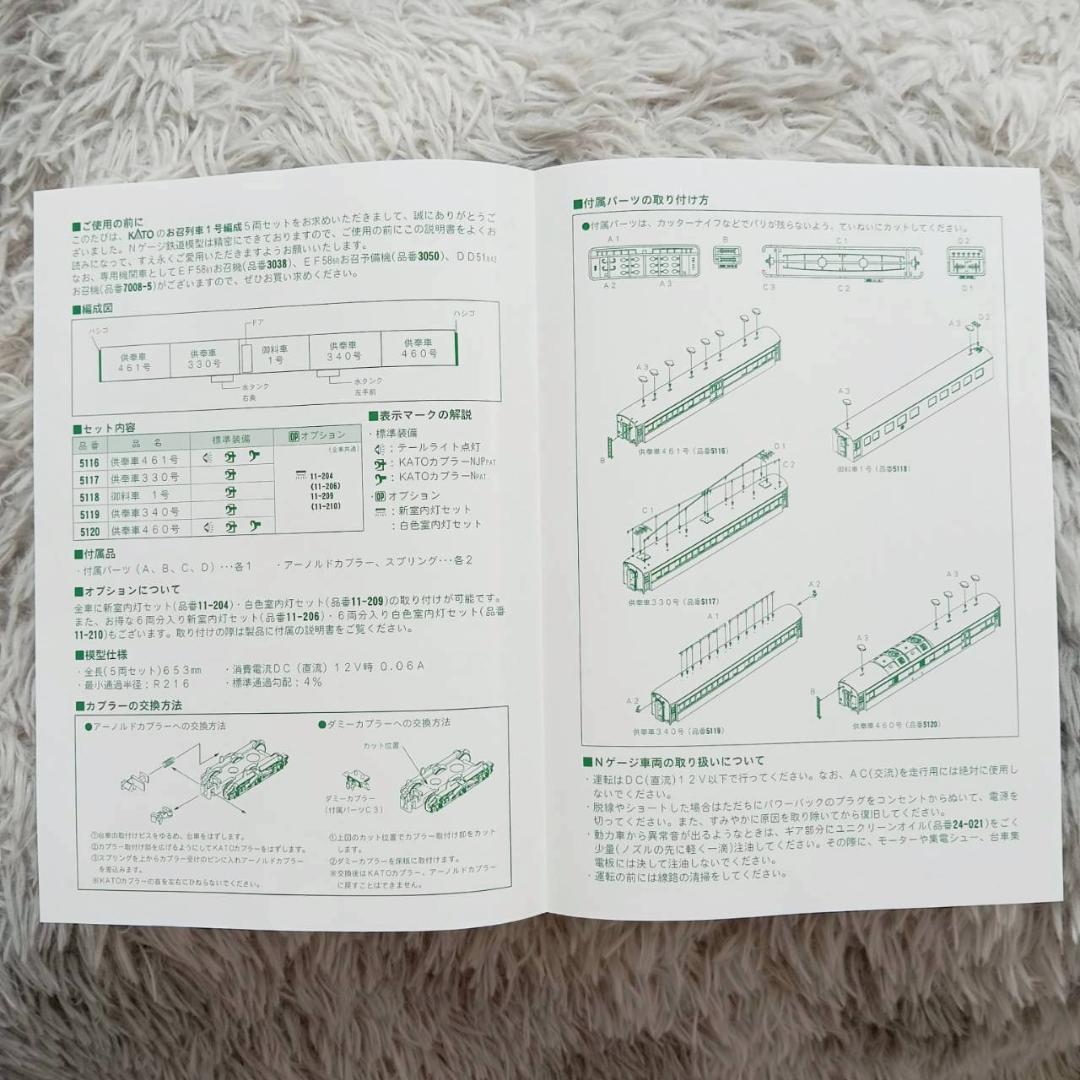 ■ご使用の前に
このたびは、KATOのお召列車1号編成5両セットをお求めいただきまして、誠にありがとうご
ざいました。Nゲージ鉄道模型は精密にできておりますので、ご使用の前にこの説明書をよくお
読みになって、すえ永くご愛用いただきますようお願いします。
なお、専用機関車としてEF58お召機(品番3038)、EF58お召予備機(品番3050)、DD51
お召機(品番7008-5)がございますので、ぜひお買い求めください。
■編成図
ハシゴ
ドア
ハシゴ
供奉車 461号
供奉車 330号
御料車 1号
供奉車 340号
供奉車 460号
水タンク 右奥
水タンク 左手前
■セット内容
品番 品名 標準装備 OPオプション
(全車共通)
5116 供奉車461号
5117 供奉車330号
5118 御料車 1号
5119 供奉車340号
5120 供奉車460号
11-204
(11-206)
11-209
(11-210)
■表示マークの解説
・標準装備
：テールライト点灯
：KATOカプラーNJP PAT
：KATOカプラーN PAT.
・OPオプション
：新室内灯セット
：白色室内灯セット
■付属品
・付属パーツ（A、B、C、D）…各1 ・アーノルドカプラー、スプリング…各2
■オプションについて
全車に新室内灯セット(品番11-204)・白色室内灯セット(品番11-209)の取り付けが可能です。
また、お得な6両分入り新室内灯セット(品番11-206)・6両分入り白色室内灯セット(品番
11-210)もございます。取り付けの際は製品に付属の説明書をご覧ください。
■模型仕様
・全長(5両セット)653mm ・消費電流DC（直流）12V時 0.06A
・最小通過半径：R216 ・標準通過勾配：4%
■カプラーの交換方法
●アーノルドカプラーへの交換方法
①台車の取付けビスをゆるめ、台車をはずします。
②カプラー取付け部を広げるようにしてKATOカプラーをはずします。
③スプリングを上からカプラー受けのピンに入れアーノルドカプラー
を差込みます。
※KATOカプラーの首を左右にひねらないでください。
●ダミーカプラーへの交換方法
カット位置
ダミーカプラー
(付属パーツC3)
①上図のカット位置でカプラー取付け部をカット
します。
②ダミーカプラーを床板に取付けます。
※交換後はKATOカプラー、アーノルドカプラー
に戻すことはできません。
■付属パーツの取り付け方
●付属パーツは、カッターナイフなどでバリが残らないよう、ていねいにカットしてください。
A1 B C1 D2
A2 A3 C3 C2 D1
A3
B
供奉車461号(品番5116)
A3 D2
A3
御料車1号(品番5118)
D1
C2
C1
供奉車330号(品番5117)
A2
A1
A2
供奉車340号(品番5119)
A3
A3
B
供奉車460号(品番5120)
■Nゲージ車両の取り扱いについて
・運転はDC(直流)12V以下で行ってください。なお、AC(交流)を走行用には絶対に使用し
ないでください。
・脱線やショートした場合はただちにパワーパックのプラグをコンセントからぬいて、電源を
切ってください。また、すみやかに原因を取り除いてから復旧してください。
・動力車から異常音が出るようなときは、ギア部分にユニクリーンオイル(品番24-021)をごく
少量(ノズルの先に軽く一滴)注油してください。その際に、モーターや集電シュー、台車集
電板には決して注油しないでください。
・運転の前には線路の清掃をしてください。